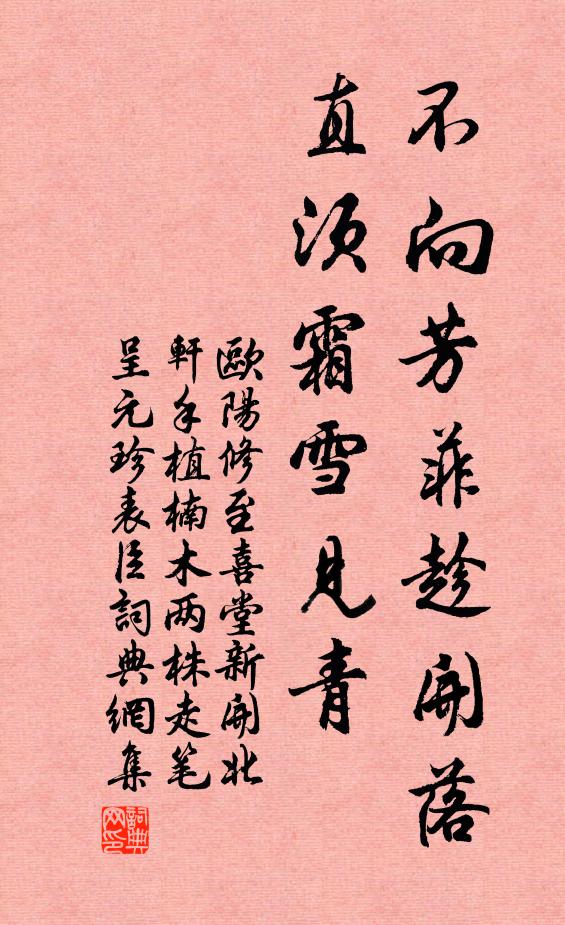 不向芳菲趁開落
直須霜雪見青
歐陽修至喜堂新開北
軒手植楠木两株走笔
呈元珍表臣詞典網集
詞典网印